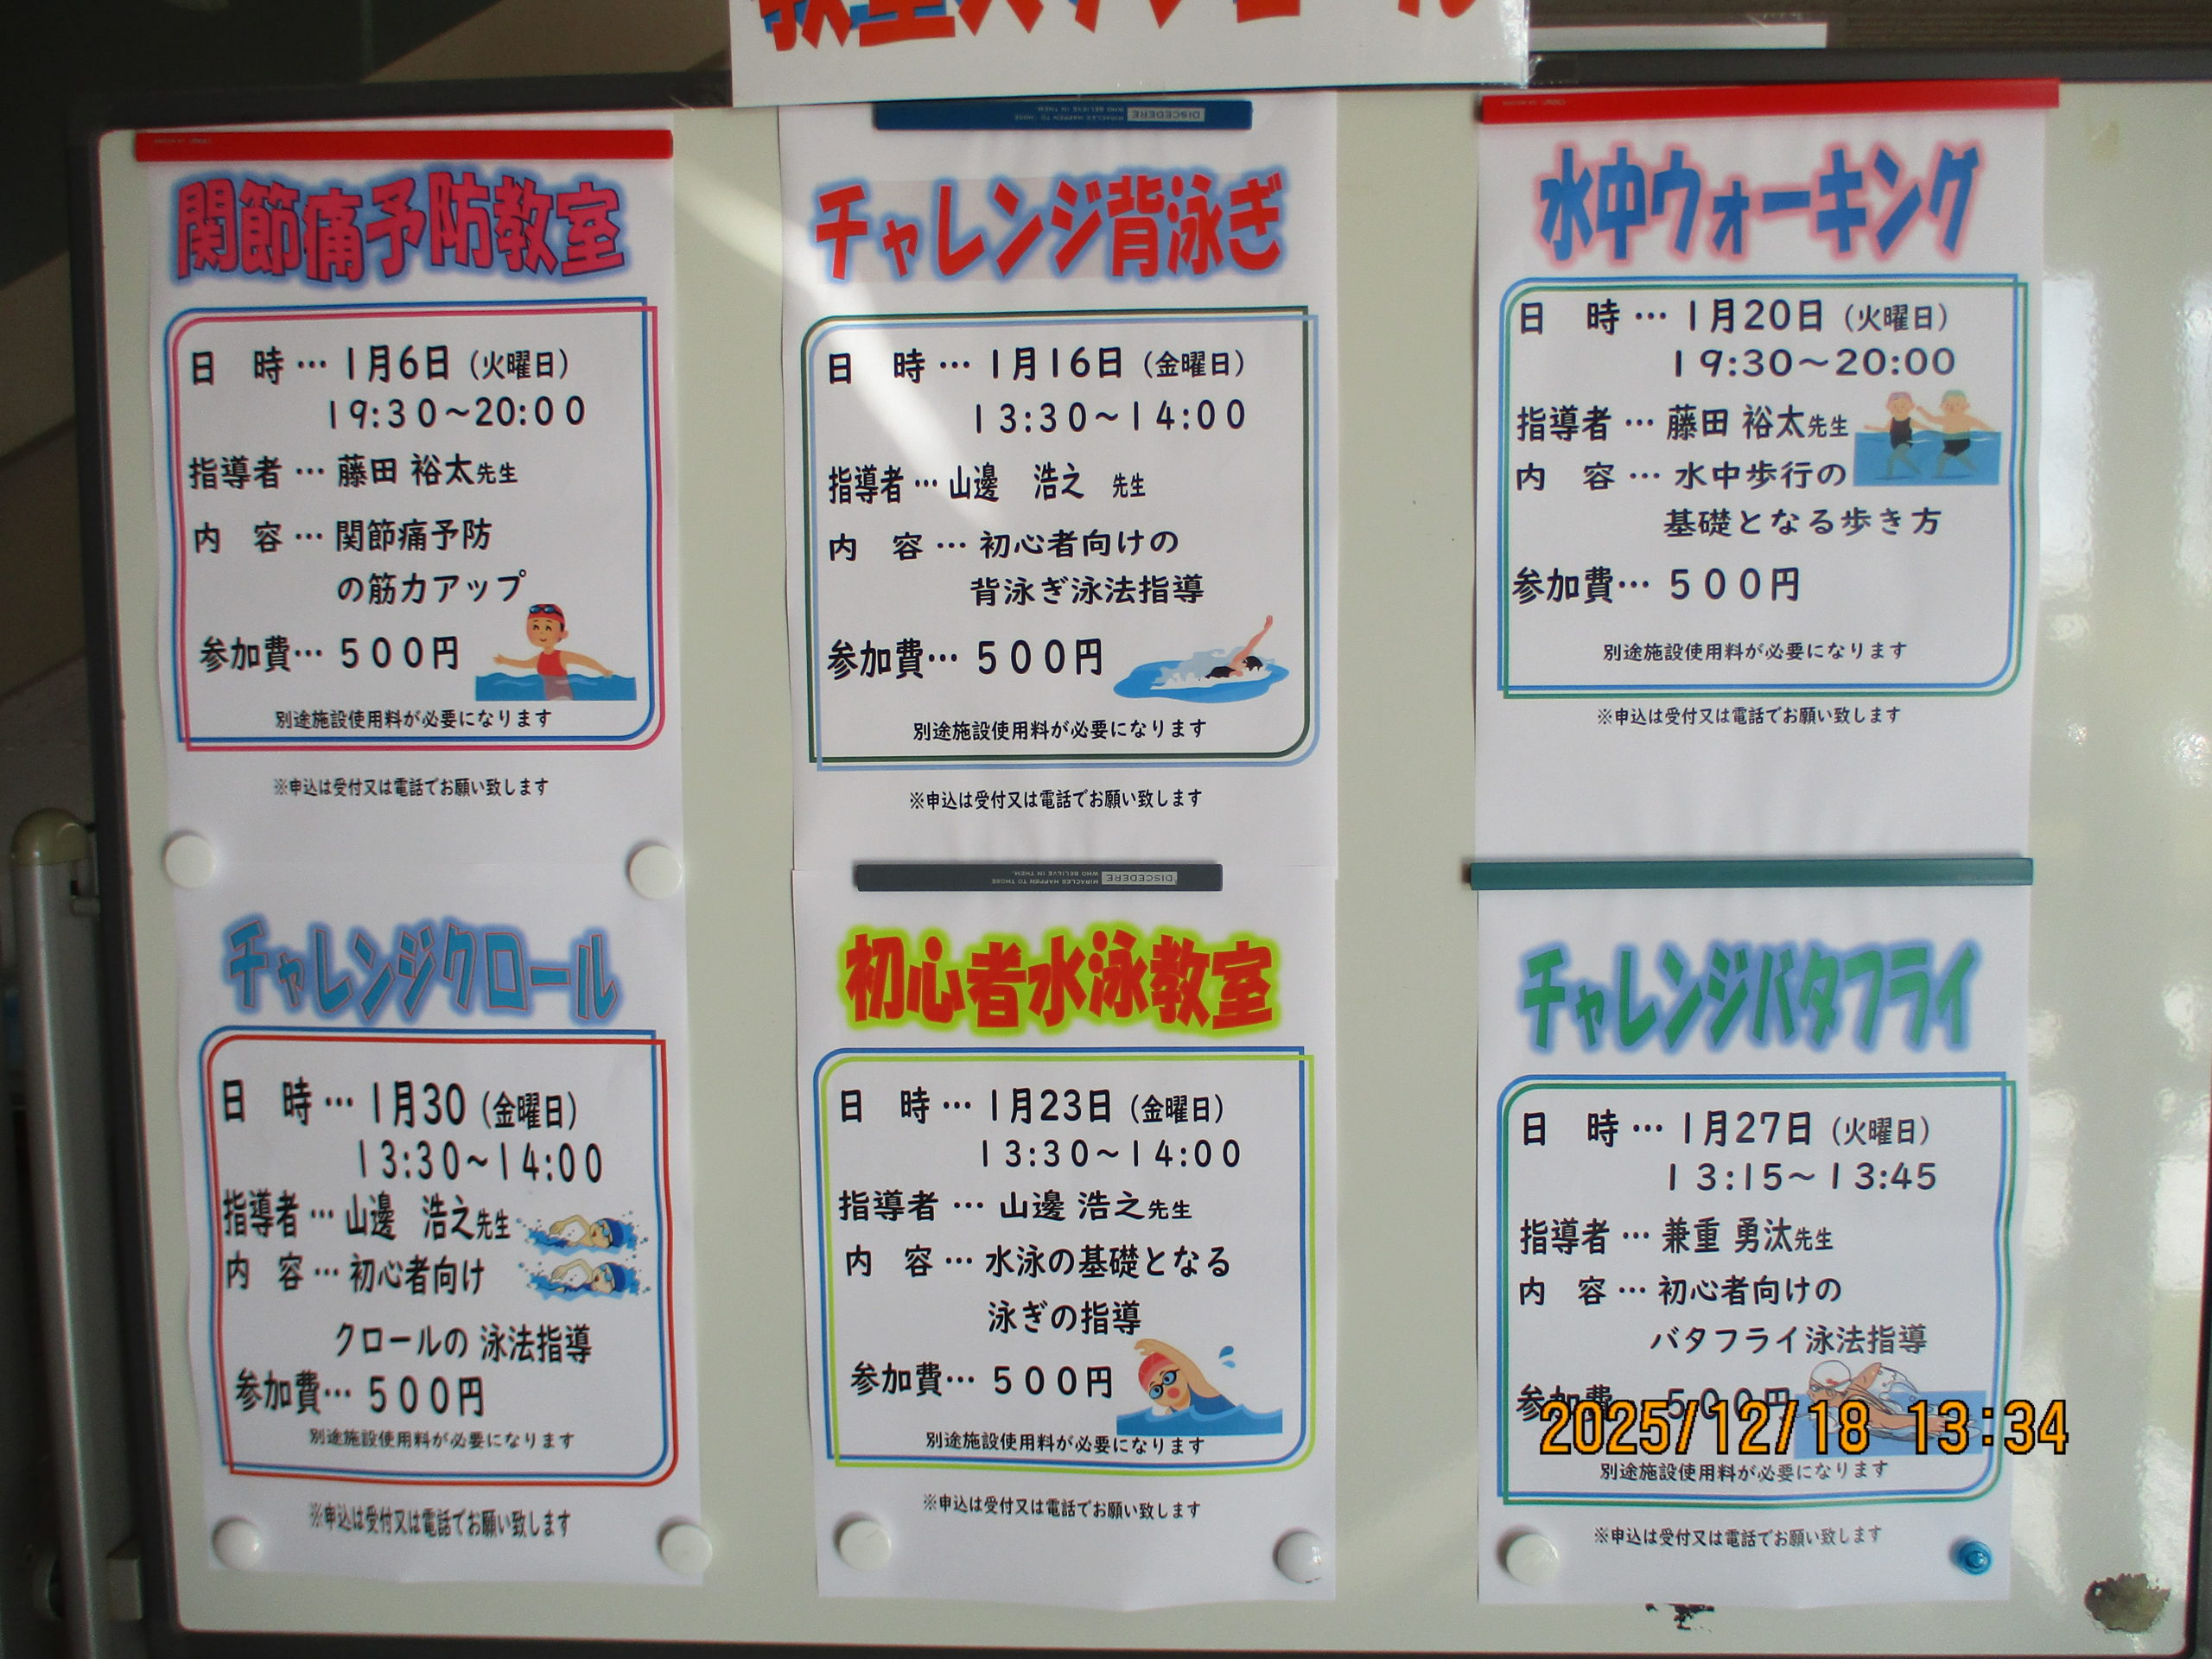 教室スケジュール
関節痛予防教室
日　時…1月6日（火曜日）
19:30～20:00
指導者…藤田 裕太先生
内　容…関節痛予防
の筋力アップ
参加費…500円
別途施設使用料が必要になります
※申込は受付又は電話でお願い致します
DISCEDERE
MIRACLES HAPPEN TO THOSE
WHO BELIEVE IN THEM.
チャレンジ背泳ぎ
日　時…1月16日（金曜日）
13:30～14:00
指導者…山邊　浩之　先生
内　容…初心者向けの
背泳ぎ泳法指導
参加費…500円
別途施設使用料が必要になります
※申込は受付又は電話でお願い致します
水中ウォーキング
日　時…1月20日（火曜日）
19:30～20:00
指導者…藤田 裕太先生
内　容…水中歩行の
基礎となる歩き方
参加費…500円
別途施設使用料が必要になります
※申込は受付又は電話でお願い致します
チャレンジクロール
日　時…1月30（金曜日）
13:30～14:00
指導者…山邊　浩之先生
内　容…初心者向け
クロールの 泳法指導
参加費…500円
別途施設使用料が必要になります
※申込は受付又は電話でお願い致します
DISCEDERE
MIRACLES HAPPEN TO THOSE
WHO BELIEVE IN THEM.
初心者水泳教室
日　時…1月23日（金曜日）
13:30～14:00
指導者…山邊 浩之先生
内　容…水泳の基礎となる
泳ぎの指導
参加費…500円
別途施設使用料が必要になります
※申込は受付又は電話でお願い致します
チャレンジバタフライ
日　時…1月27日（火曜日）
13:15～13:45
指導者…兼重 勇汰先生
内　容…初心者向けの
バタフライ泳法指導
参加費…500円
別途施設使用料が必要になります
※申込は受付又は電話でお願い致します
2025/12/18 13:34